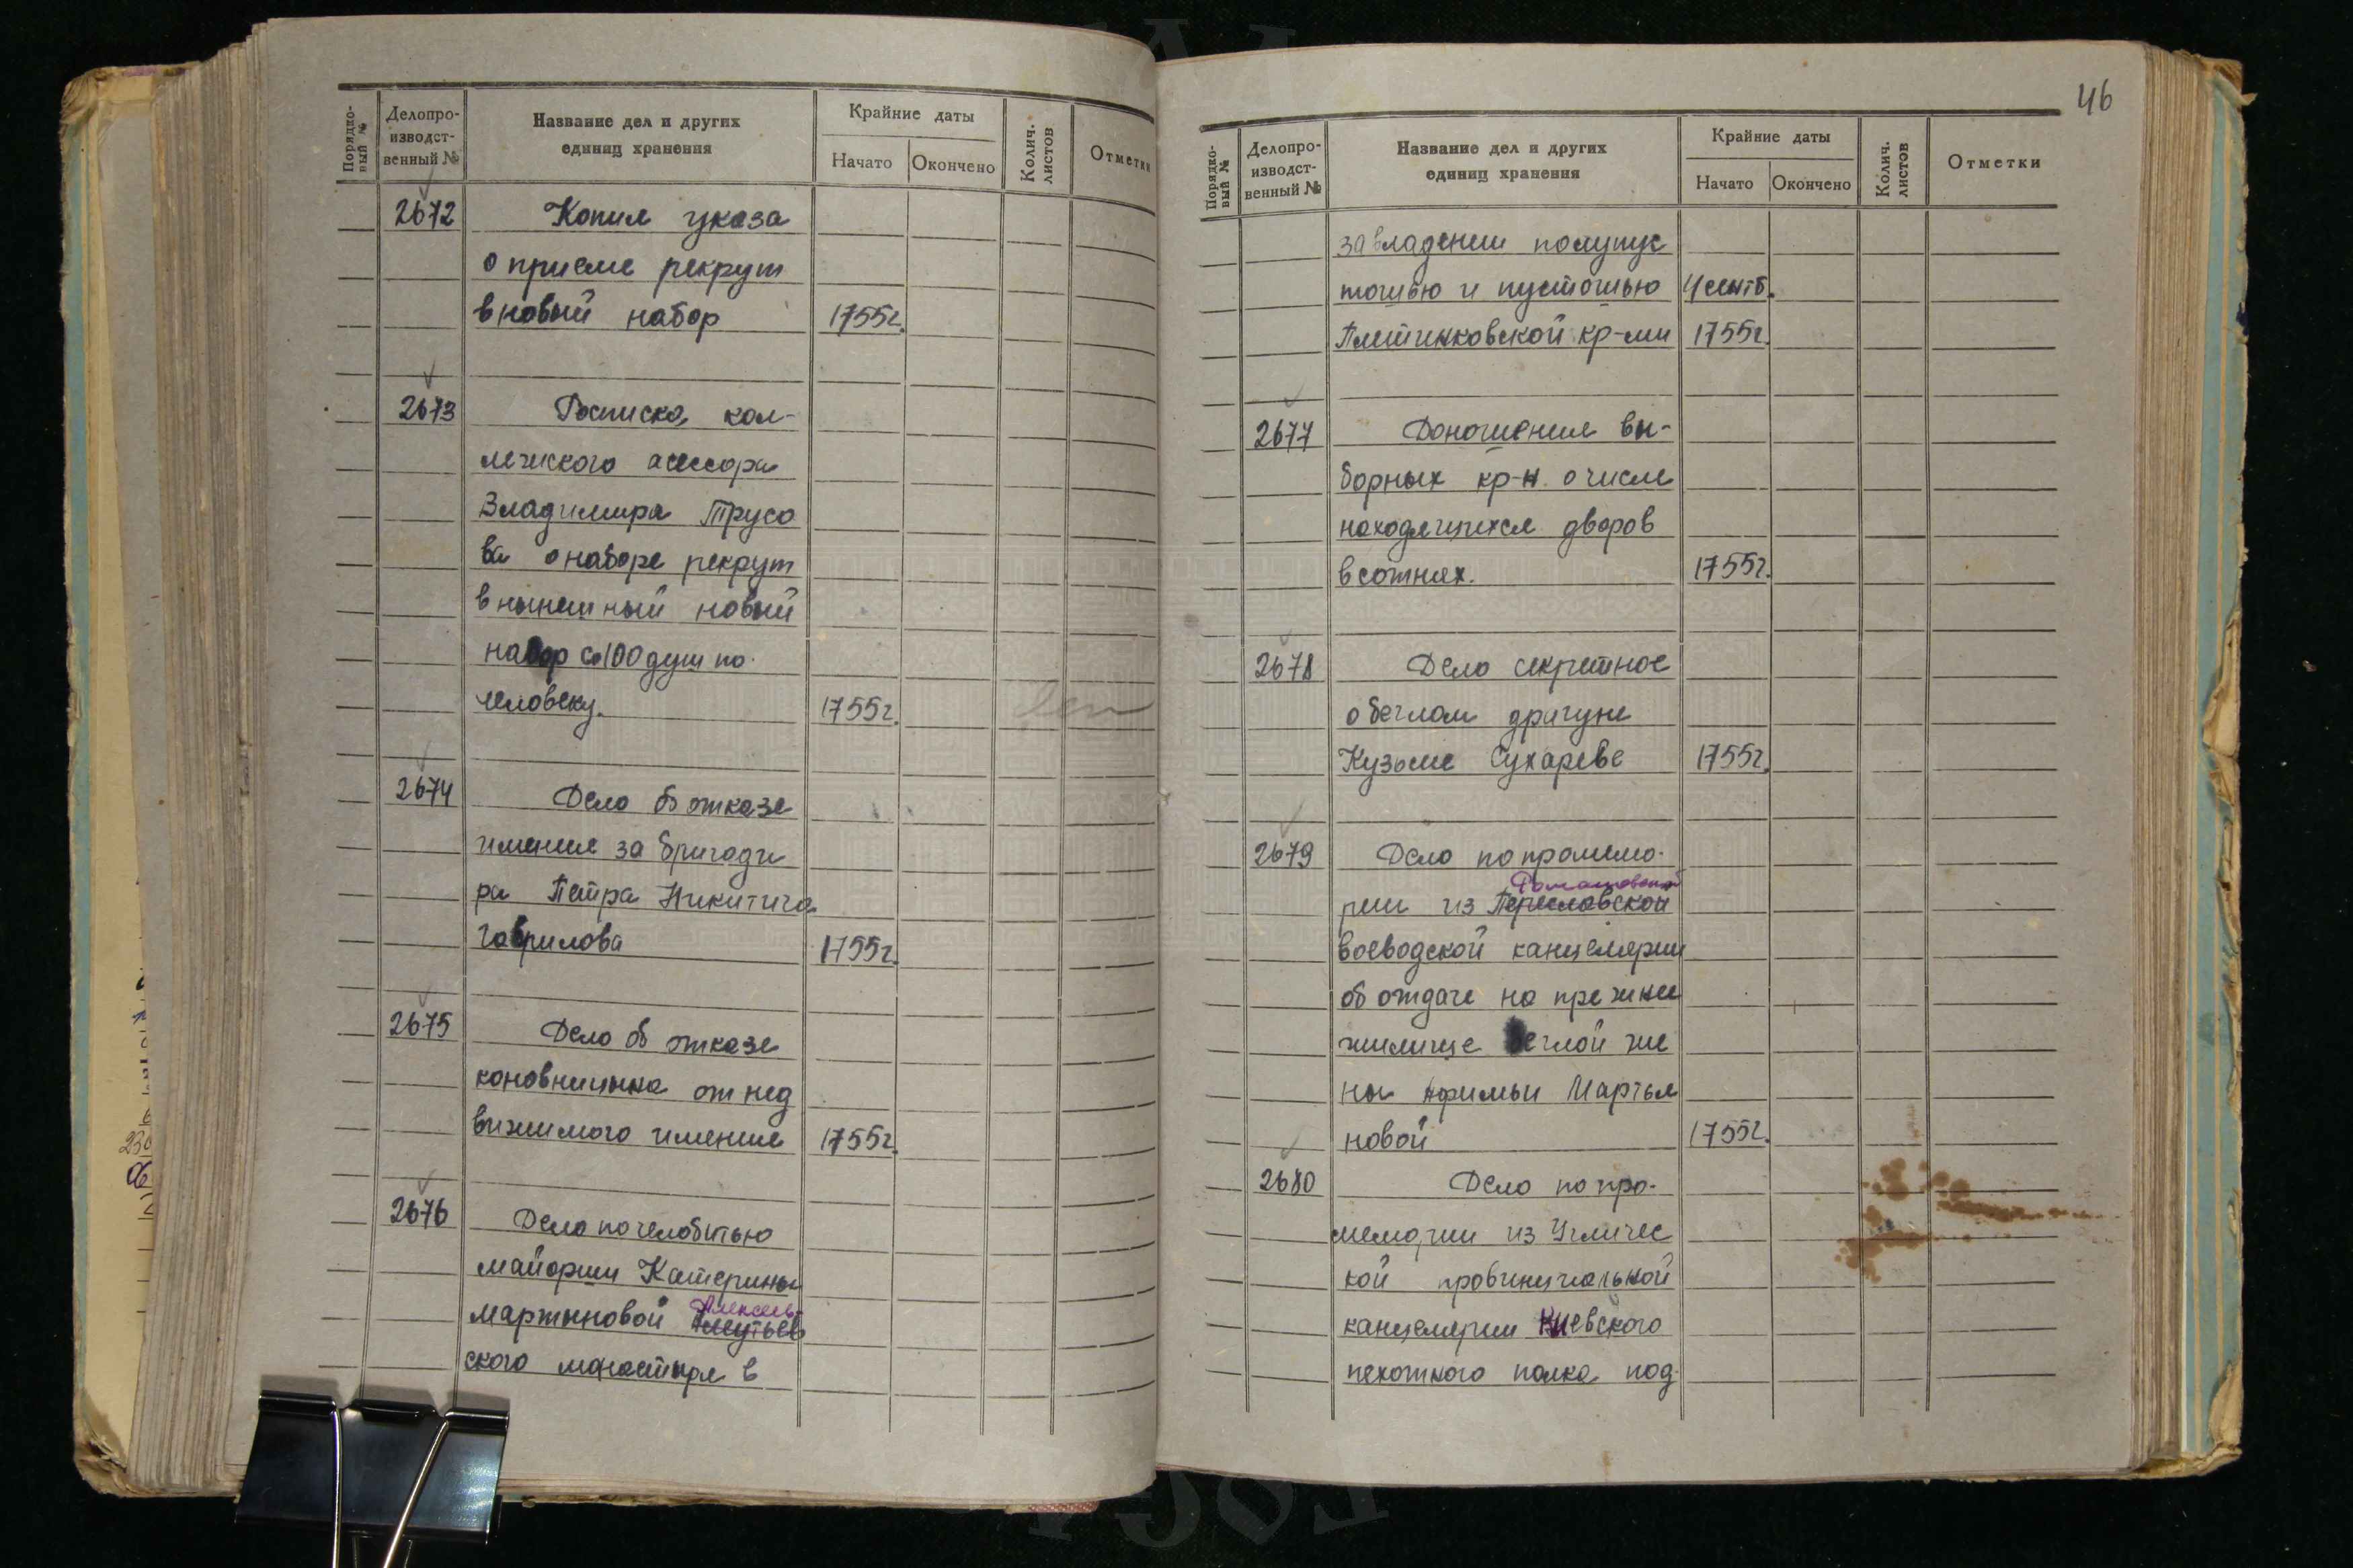 Порядко-
вый №
Делопро-
изводст-
венный №
Название дел и других
единиц хранения
Крайние даты
Начато
Окончено
Колич.
листов
Отметки
2672 Копия указа
о приеме рекрут
в новый набор 1755г.
2673 Росписка кол-
лежского асессора
Владимира Трусо
ва о наборе рекрут
в нынешный новый
набор со 100 душ по
человеку. 1755г.
2674 Дело об отказе
имения за бригади
ра Петра Никитича
Гаврилова 1755г.
2675 Дело об отказе
кановницына от нед
вижимого имения 1755г.
2676 Дело по челобитью
майорши Катерины
Мартыновой Алексеев-
ского монастыря в
46
Порядко-
вый №
Делопро-
изводст-
венный №
Название дел и других
единиц хранения
Крайние даты
Начато
Окончено
Колич.
листов
Отметки
завладении полупус
тошью и пустошью 4 сентб.
кр-ми 1755г.
2677 Доношения вы-
борных кр-н о числе
находящихся дворов
в сотнях. 1755г.
2678 Дело секретное
о беглом драгуне
Кузьме Сухареве 1755г.
2679 Дело по промемо-
Романовской
рии из Переславской
воеводской канцелярии
об отдаче на прежнее
жилище беглой же
ны Афимьи Мартья
новой 1755г.
2680 Дело по про-
мемории из Угличес
кой провинциальной
канцелярии Киевского
пехотного полка под-